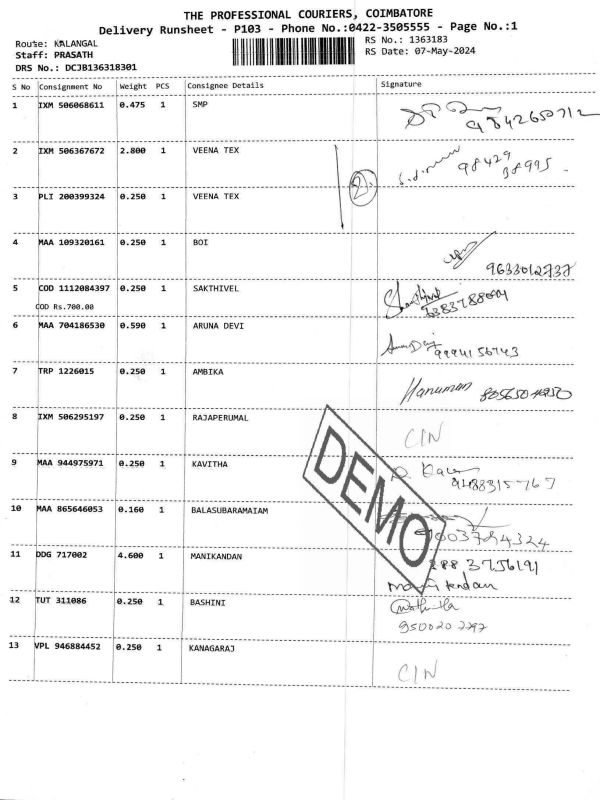 THE PROFESSIONAL COURIERS, COIMBATORE
Delivery Runsheet - P103 - Phone No.:0422-3505555 - Page No.:1
Route: KALANGAL RS No.: 1363183
Staff: PRASATH RS Date: 07-May-2024
DRS No.: DCJB136318301
S No Consignment No Weight PCS Consignee Details Signature
1 IXM 506068611 0.475 1 SMP
2 IXM 506367672 2.800 1 VEENA TEX 98429
38995
2.
3 PLI 200399324 0.250 1 VEENA TEX
4 MAA 109320161 0.250 1 BOI
9633012737
5 COD 1112084397 0.250 1 SAKTHIVEL
COD Rs.700.00
6 MAA 704186530 0.590 1 ARUNA DEVI
9994156743
7 TRP 1226015 0.250 1 AMBIKA Hanuman
8 IXM 506295197 0.250 1 RAJAPERUMAL CIN
9 MAA 944975971 0.250 1 KAVITHA
DEMO
10 MAA 865646053 0.160 1 BALASUBARAMAIAM
11 DDG 717002 4.600 1 MANIKANDAN
12 TUT 311086 0.250 1 BASHINI
13 VPL 946884452 0.250 1 KANAGARAJ CIN